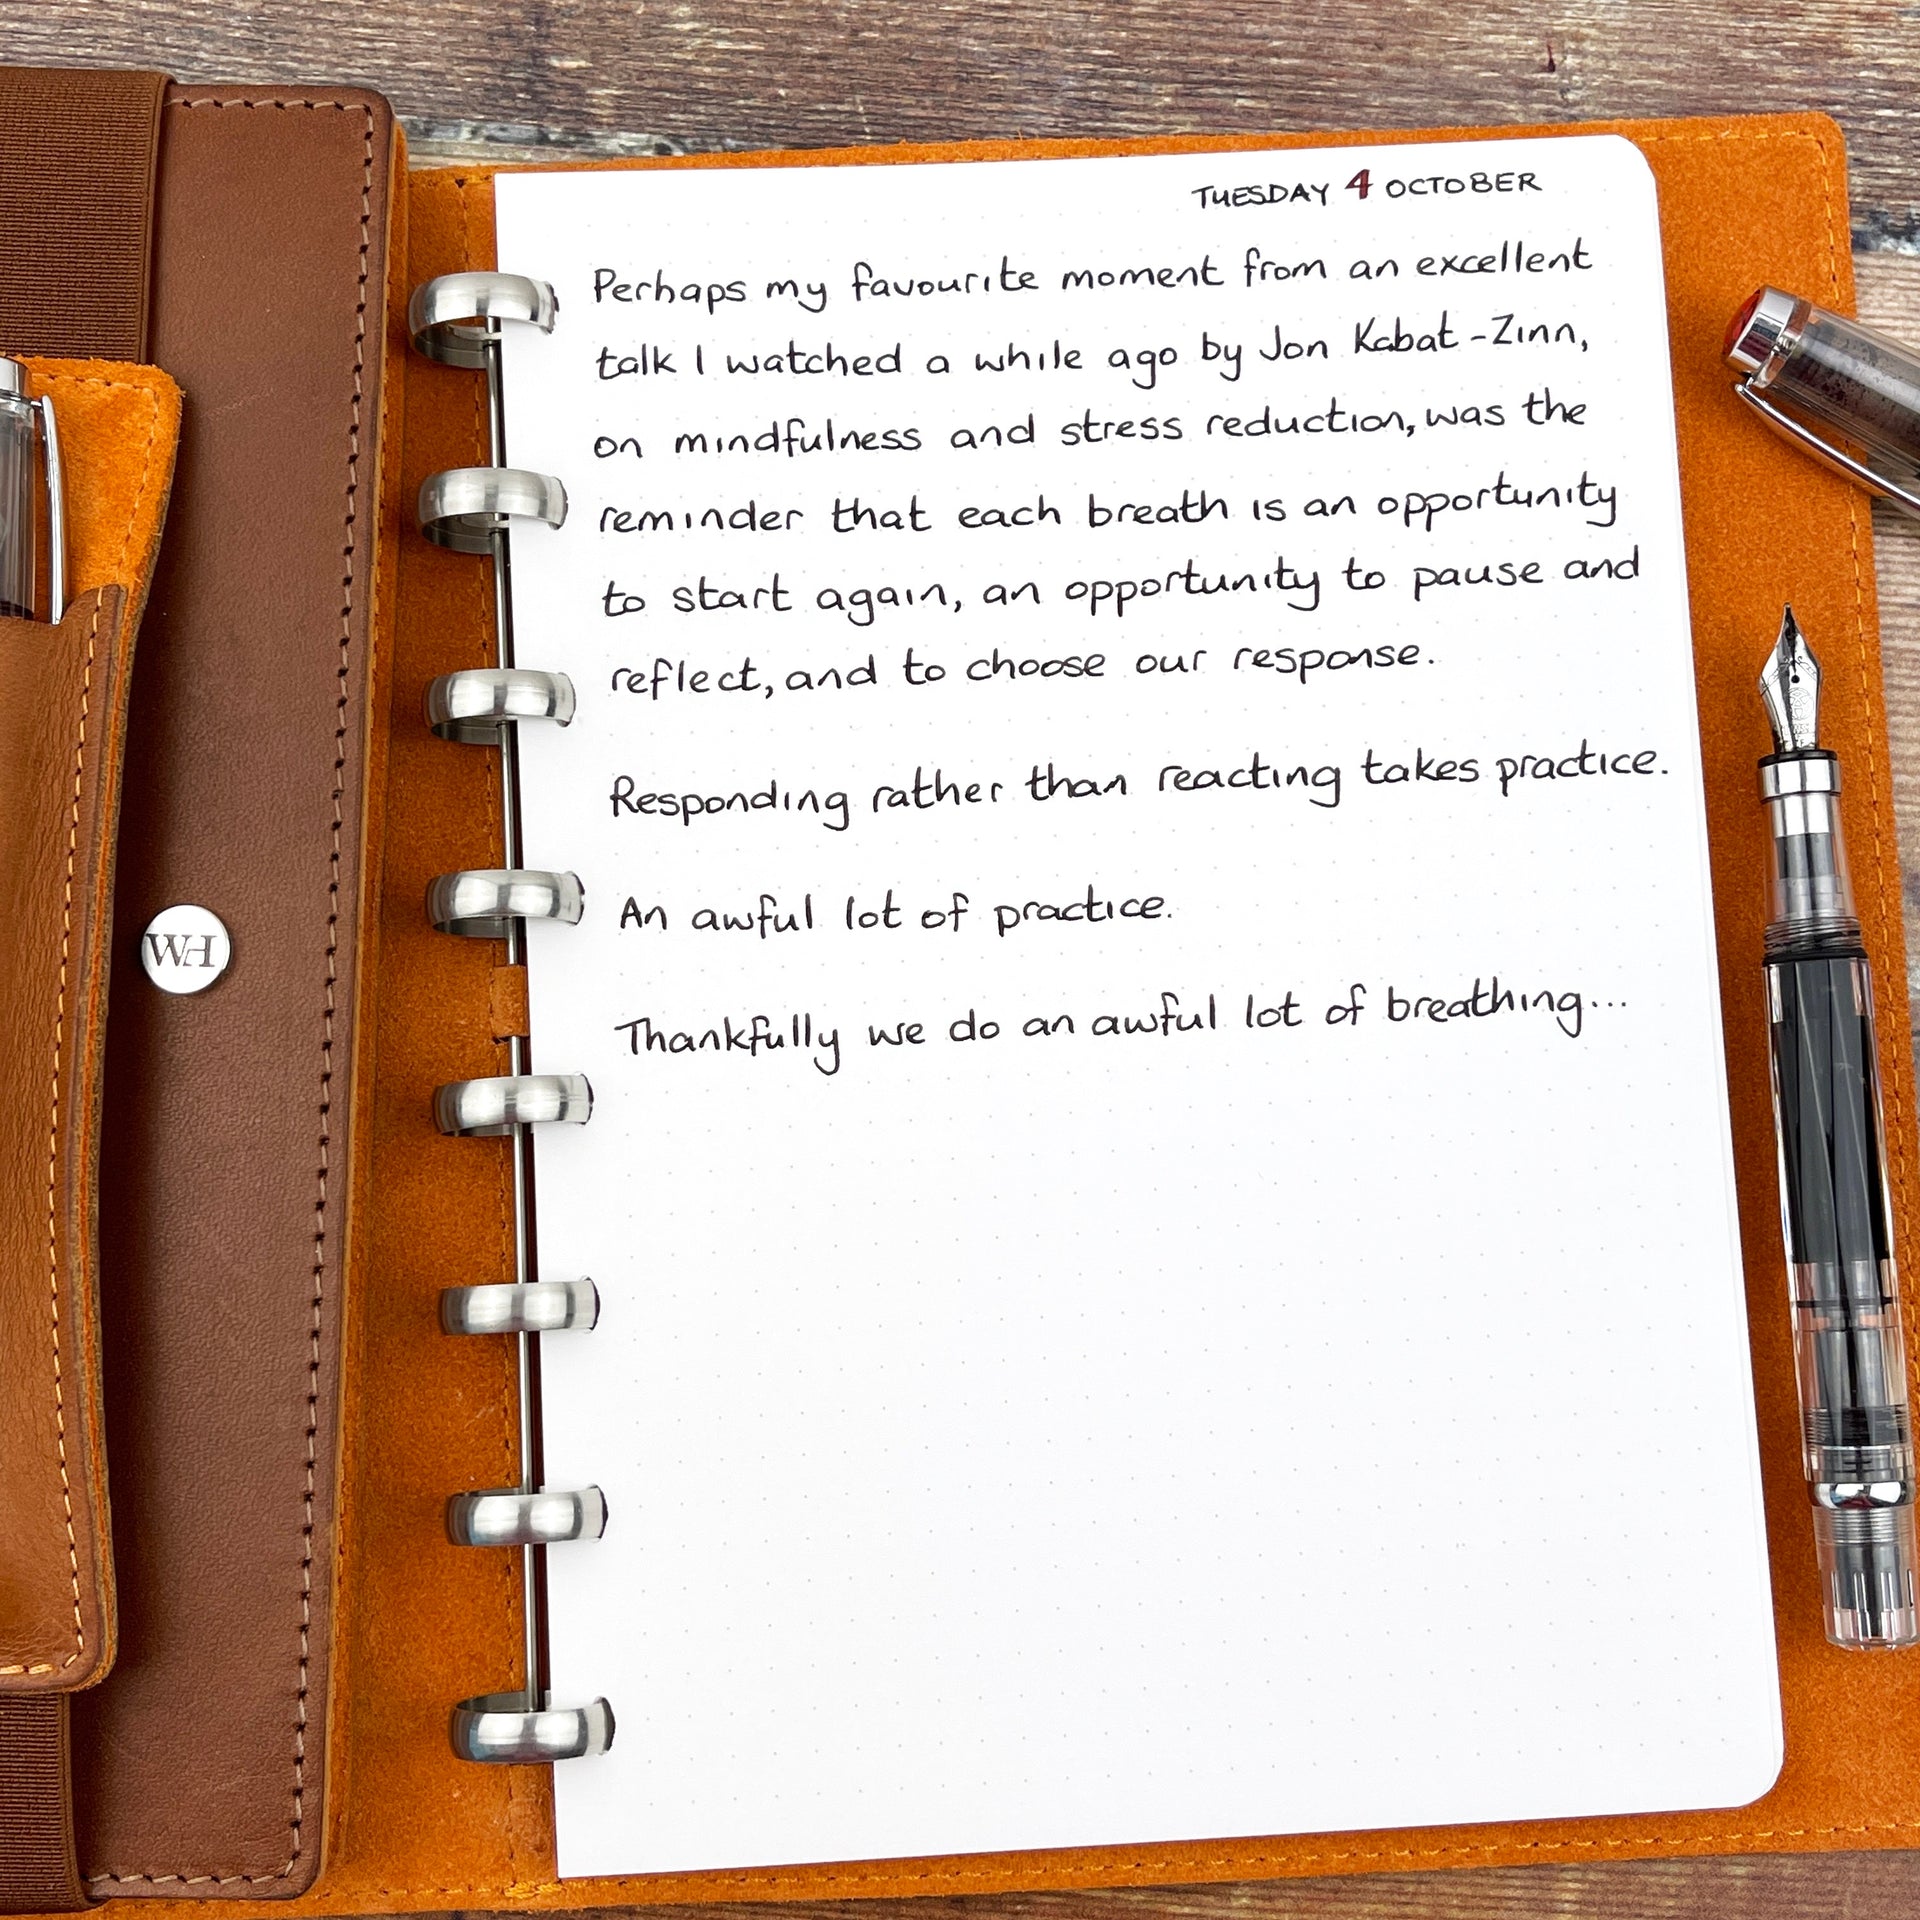 TUESDAY 4 OCTOBER
Perhaps my favourite moment from an excellent
talk I watched a while ago by Jon Kabat-Zinn,
on mindfulness and stress reduction, was the
reminder that each breath is an opportunity
to start again, an opportunity to pause and
reflect, and to choose our response.
Responding rather than reacting takes practice.
An awful lot of practice.
Thankfully we do an awful lot of breathing...
WH